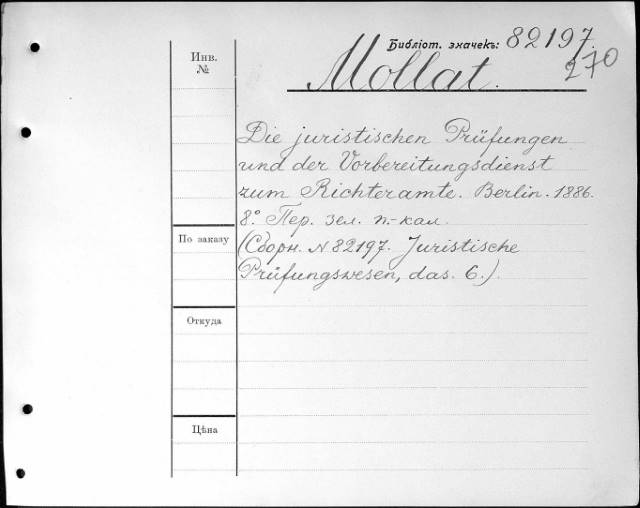 Библіот. значекъ: 82197.
270
Mollat.
Инв.
№
Die juristischen Prüfungen
und der Vorbereitungsdienst
zum Richteramte. Berlin. 1886.
8º. Пер. зел. п.-кал.
(Сборн. № 82197. Juristische
Prüfungswesen, das. 6.).
По заказу
Откуда
Цѣна